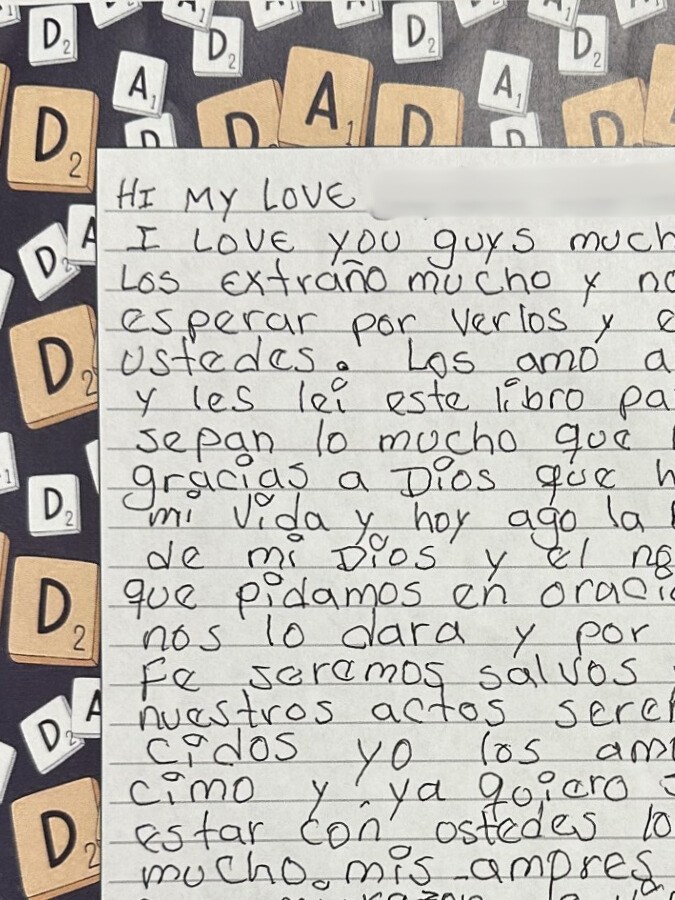 D2 D2 D2 D2
A1 A1
D2 D A1 D D
HI MY LOVE
I LOVE you guys much
Los extraño mucho y no
esperar por verlos y e
ustedes. Los amo a
y les lei este libro pa
sepan lo mucho que
gracias a Dios que h
mi vida y hoy ago la
de mi Dios y el no
que pidamos en oracio
nos lo dara y por
Fe seremos salvos
nuestros actos sere
cidos yo los am
cimo y ya quiero
estar con ostedes lo
mucho. mis ampres
D2 A
D2
D2
D2
D2 A
D2